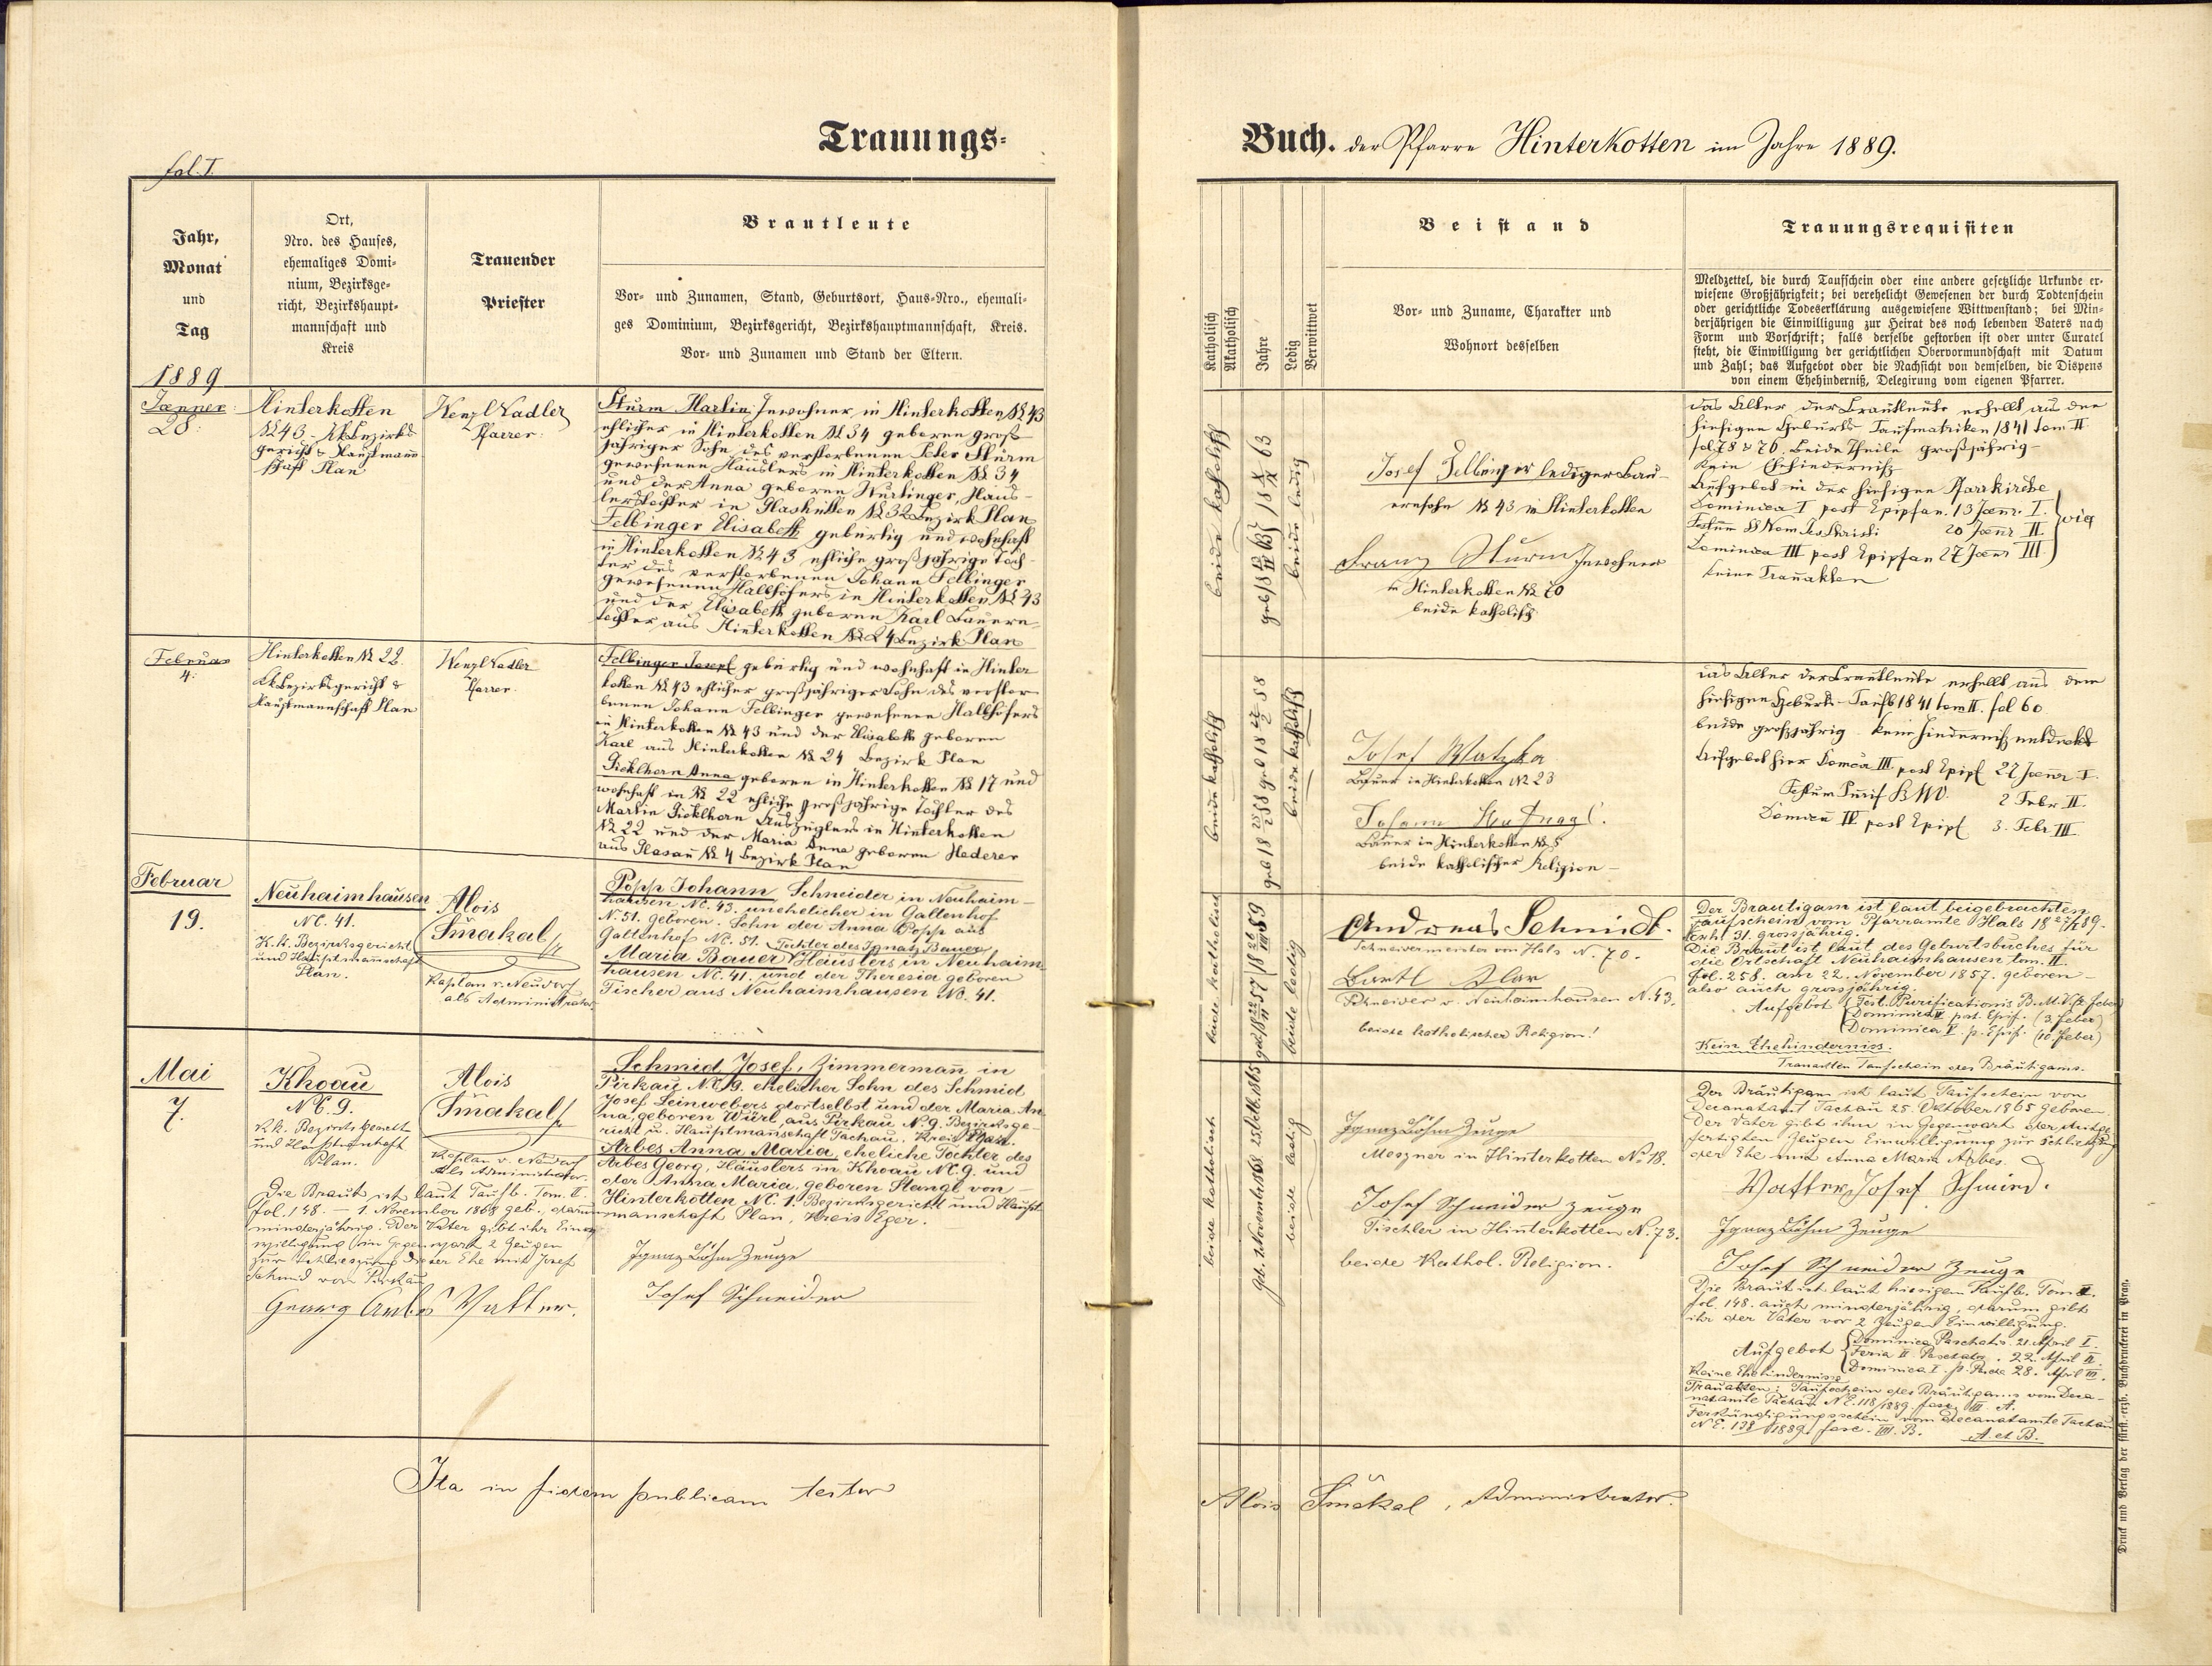 Trauungs-
fol. I.
Jahr,
Monat
und
Tag
1889
Ort,
Nro. des Hauses,
ehemaliges Domi-
nium, Bezirksge-
richt, Bezirkshaupt-
mannschaft und
Kreis
Trauender
Priester
Brautleute
Vor- und Zunamen, Stand, Geburtsort, Haus-Nro., ehemali-
ges Dominium, Bezirksgericht, Bezirkshauptmannschaft, Kreis.
Vor- und Zunamen und Stand der Eltern.
Jænner
28.
Hinterkotten
№ 43. k.k. Bezirks
gericht & Hauptmann
schaft Plan
Wenzl Nadler
Pfarrer.
Sturm Martin Inwohner in Hinterkotten № 43
ehlicher in Hinterkotten № 34 geboren groß
jähriger Sohn des verstorbenen Peter Sturm
gewesenen Häuslers in Hinterkotten № 34
und der Anna geboren Wurtinger, Häus-
lerstochter in Glashütten № 32 Bezirk Plan
Felbinger Elisabeth gebürtig und wohnhaft
in Hinterkotten № 43 ehliche großjährige Toch-
ter des verstorbenen Johann Felbinger
gewesenen Halbhöfers in Hinterkotten № 43
und der Elisabeth geboren Karl Bauern-
tochter aus Hinterkotten № 24 Bezirk Plan
Februar
4.
Hinterkotten № 22.
k.k. Bezirksgericht &
Hauptmannschaft Plan
Wenzl Nadler
Pfarrer.
Felbinger Josef gebürtig und wohnhaft in Hinter
kotten № 43 ehlicher großjähriger Sohn des verstor
benen Johann Felbinger gewesenen Halbhöfers
in Hinterkotten № 43 und der Elisabeth geboren
Karl aus Hinterkotten № 24 Bezirk Plan
Sicklhorn Anna geboren in Hinterkotten № 17 und
wohnhaft in № 22 ehliche großjährige Tochter des
Martin Sicklhorn Auszüglers in Hinterkotten
№ 22 und der Maria Anna geboren Hederer
aus № 4 Bezirk Plan
Februar
19.
Neuhaimhausen
NC. 41.
K. k. Bezirksgericht
und Hauptmannschaft
Plan.
Alois
Smakal
Kaplan v. Neudorf
als Administrator.
Popp Johann, Schneider in Neuhaim-
hausen NC. 43. unehelicher in Galtenhof
N. 51. geboren. Sohn der Anna Popp aus
Galtenhof NC. 51. Tochter des Ignatz Bauer
Maria Bauer Häuslers in Neuhaim-
hausen NC. 41. und der Theresia geboren
Fischer aus Neuhaimhausen No. 41.
Mai
7.
Khoau
NC. 9.
k.k. Bezirksgericht
und Hauptmannschaft
Plan.
Alois
Smakal
Kaplan v. Neudorf
als Administrator.
Schmid Josef, Zimmermañ in
Pirkau NC. 9. ehelicher Sohn des Schmid
Josef Leinwebers dortselbst und der Maria An-
na, geboren Würl, aus Pirkau N. 9. Bezirksge-
richt u. Hauptmanschaft Tachau. Kreis
Arbes Anna Maria, eheliche Tochter des
Arbes Georg, Häuslers in Khoau NC. 9. und
der Anna Maria, geboren Stangl von
Hinterkotten NC. 1. Bezirksgericht und Haupt-
manschaft Plan, Kreis Eger.
Die Braut ist laut Taufb. Tom. II.
fol. 148. – 1. November 1868 geb., darum
minderjährig. Der Vater gibt ihr Einw
willigung in Gegenwart 2 Zeugen
zur Schliessung dieser Ehe mit Josef
Schmid von Pirkau
Georg Arbes Vatter.
Ignaz Böhm Zeuge
Josef Schneider
Ita in fidem publicam testor
Buch. der Pfarre Hinterkotten im Jahre 1889.
Katholisch
Akatholisch
Jahre
Ledig
Verwittwet
Beistand
Vor- und Zuname, Charakter und
Wohnort desselben
Trauungsrequisiten
Meldzettel, die durch Taufschein oder eine andere gesetzliche Urkunde er-
wiesene Großjährigkeit; bei verehelicht Gewesenen der durch Todtenschein
oder gerichtliche Todeserklärung ausgewiesene Wittwenstand; bei Min-
derjährigen die Einwilligung zur Heirat des noch lebenden Vaters nach
Form und Vorschrift; falls derselbe gestorben ist oder unter Curatel
steht, die Einwilligung der gerichtlichen Obervormundschaft mit Datum
und Zahl; das Aufgebot oder die Nachsicht von demselben, die Dispens
von einem Ehehinderniß, Delegirung vom eigenen Pfarrer.
beide katholisch
beide ledig
Josef Felbinger lediger Bau-
ernsohn № 43 in Hinterkotten
Franz Sturm Inwohner
in Hinterkotten № 70
beide katholisch
das Alter der Brautleute erhellt aus den
hiesigen Geburts Taufmatriken 1841 tom II
fol 78 & 76. Beide Theile großjährig –
Kein Ehehinderniß
Aufgebot in der hiesigen Pfarrkirche
Dominica I post Epiphan. 13 Jænr. I.
Festum SS Nom. Jes Christi 20 Jænr II
Dominica III post Epiphan 27 Jænr III
keine Trauakten
beide katholisch
beide katholisch
Josef Watzka
Bauer in Hinterkotten № 23
Johann Hufnagl.
Bauer in Hinterkotten № 5
beide katholischer Religion –
das Alter der Brautleute erhellt aus dem
hiesigen Geburts-Taufb 1841 tom II. fol 60
beide großjährig. Kein Hinderniß entdeckt
Aufgebot hier Domca III post Epiph 27 Jænr I.
Festum Purif B.M.V. 2 Febr II.
Domca IV post Epiph 3. Febr III.
beide katholisch
beide ledig
Andreas Schmidt.
Schneidermeister von Hals N. 70.
Bartl
Schneider v. Neuhaimhausen N. 43.
beide katholischer Religion!
Der Bräutigam ist laut beigebrachten
Taufschein vom Pfarramte Hals
Exh. 31. grossjährig.
Die Braut ist laut des Geburtsbuches für
die Ortschaft Neuhaimhausen tom. II.
fol. 258. am 22. November 1857. geboren –
also auch grossjährig.
Aufgebot Fest. Purificationis B.M.V.
Dominica IV post. Epif. (3. Feber)
Dominica V. p. Epif. (10. Feber)
Kein Ehehinderniss.
Trauakten Taufschein des Bräutigams.
beide katholisch.
Geb. 1. November 1868. 25. Oktb. 1865
beide ledig
Ignaz Böhm Zeuge
Meszner in Hinterkotten No. 18.
Josef Schneider Zeuge
Tischler in Hinterkotten N. 73.
beide Kathol. Religion.
Der Bräutigam ist laut Taufschein von
Decanatamt Tachau 25. Oktober 1865 geboren.
Der Vater gibt ihm in Gegenwart der mitge
fertigten Zeugen Einwilligung zur Schliessung
der Ehe mit Anna Maria Arbes.
Vatter, Josef Schmied.
Ignaz Böhm Zeuge
Josef Schneider Zeuge
Die Braut ist laut hiesigem Taufb. Tom II.
fol. 148. auch minderjährig, darum gibt
ihr der Vater vor 2 Zeugen Einwilligung.
Aufgebot Dominica Paschatis. 21. April I.
Feria II Paschatis. 22. April II.
Dominica I. p. Pascha 28. April III.
Keine Ehehindernisse
Trauakten: Taufschein des Bräutigams vom Deca-
natamte Tachau NE. 118/1889. fasc. III. A.
Verkündigungsschein vom Decanatamte Tachau
NE. 138/1889. fasc. III. B. A. et B.
Alois Smakal, Administrator.
Druck und Verlag der fürst.-erzb. Buchdruckerei in Prag.